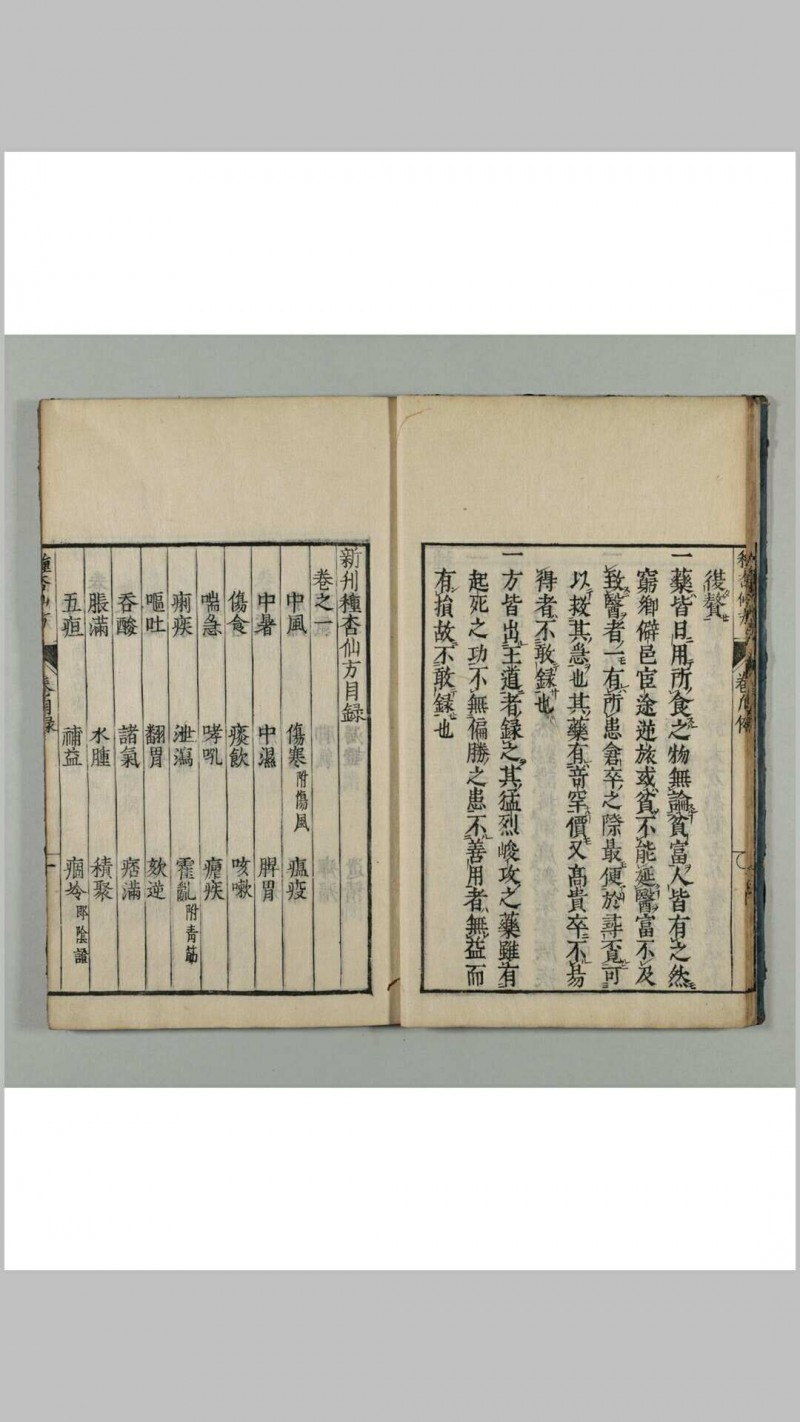 復贅
一藥皆日用所食之物無論貧富人皆有之然
窮鄉僻邑宦途逆旅或貧不能延醫富不及
致醫者一有所患倉卒之際最便於尋覓可
以救其急也其藥有苛罕價又高貴卒不易
得者不敢録也
一方皆出王道者録之其猛烈峻攻之藥雖有
起死之功不無偏勝之患不善用者無益而
有損故不敢録也
新刋種杏仙方目録
卷之一
中風 傷寒附傷風 瘟疫
中暑 中濕 脾胃
傷食 痰飲 咳嗽
喘急 哮吼 瘧疾
痢疾 泄瀉 霍亂附青筋
嘔吐 翻胃 欬逆
吞酸 諸氣 痞滿
脹滿 水腫 積聚
五疸 補益 痼冷即陰證
種杏仙方 卷目録